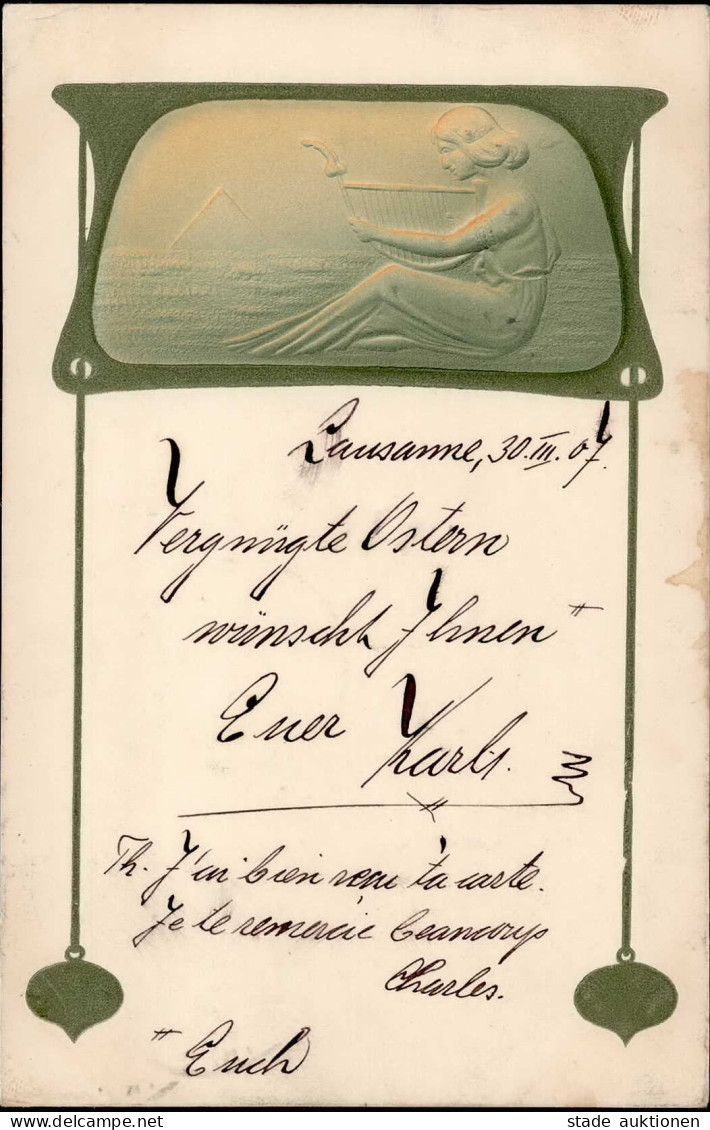 Lausanne, 30. III. 07.
Vergnügte Ostern
wünscht Ihnen #
Euer Karli.
Th. J'ai bien reçu ta carte.
Je te remercie beaucoup
Charles.
# Euch
stade auktionen